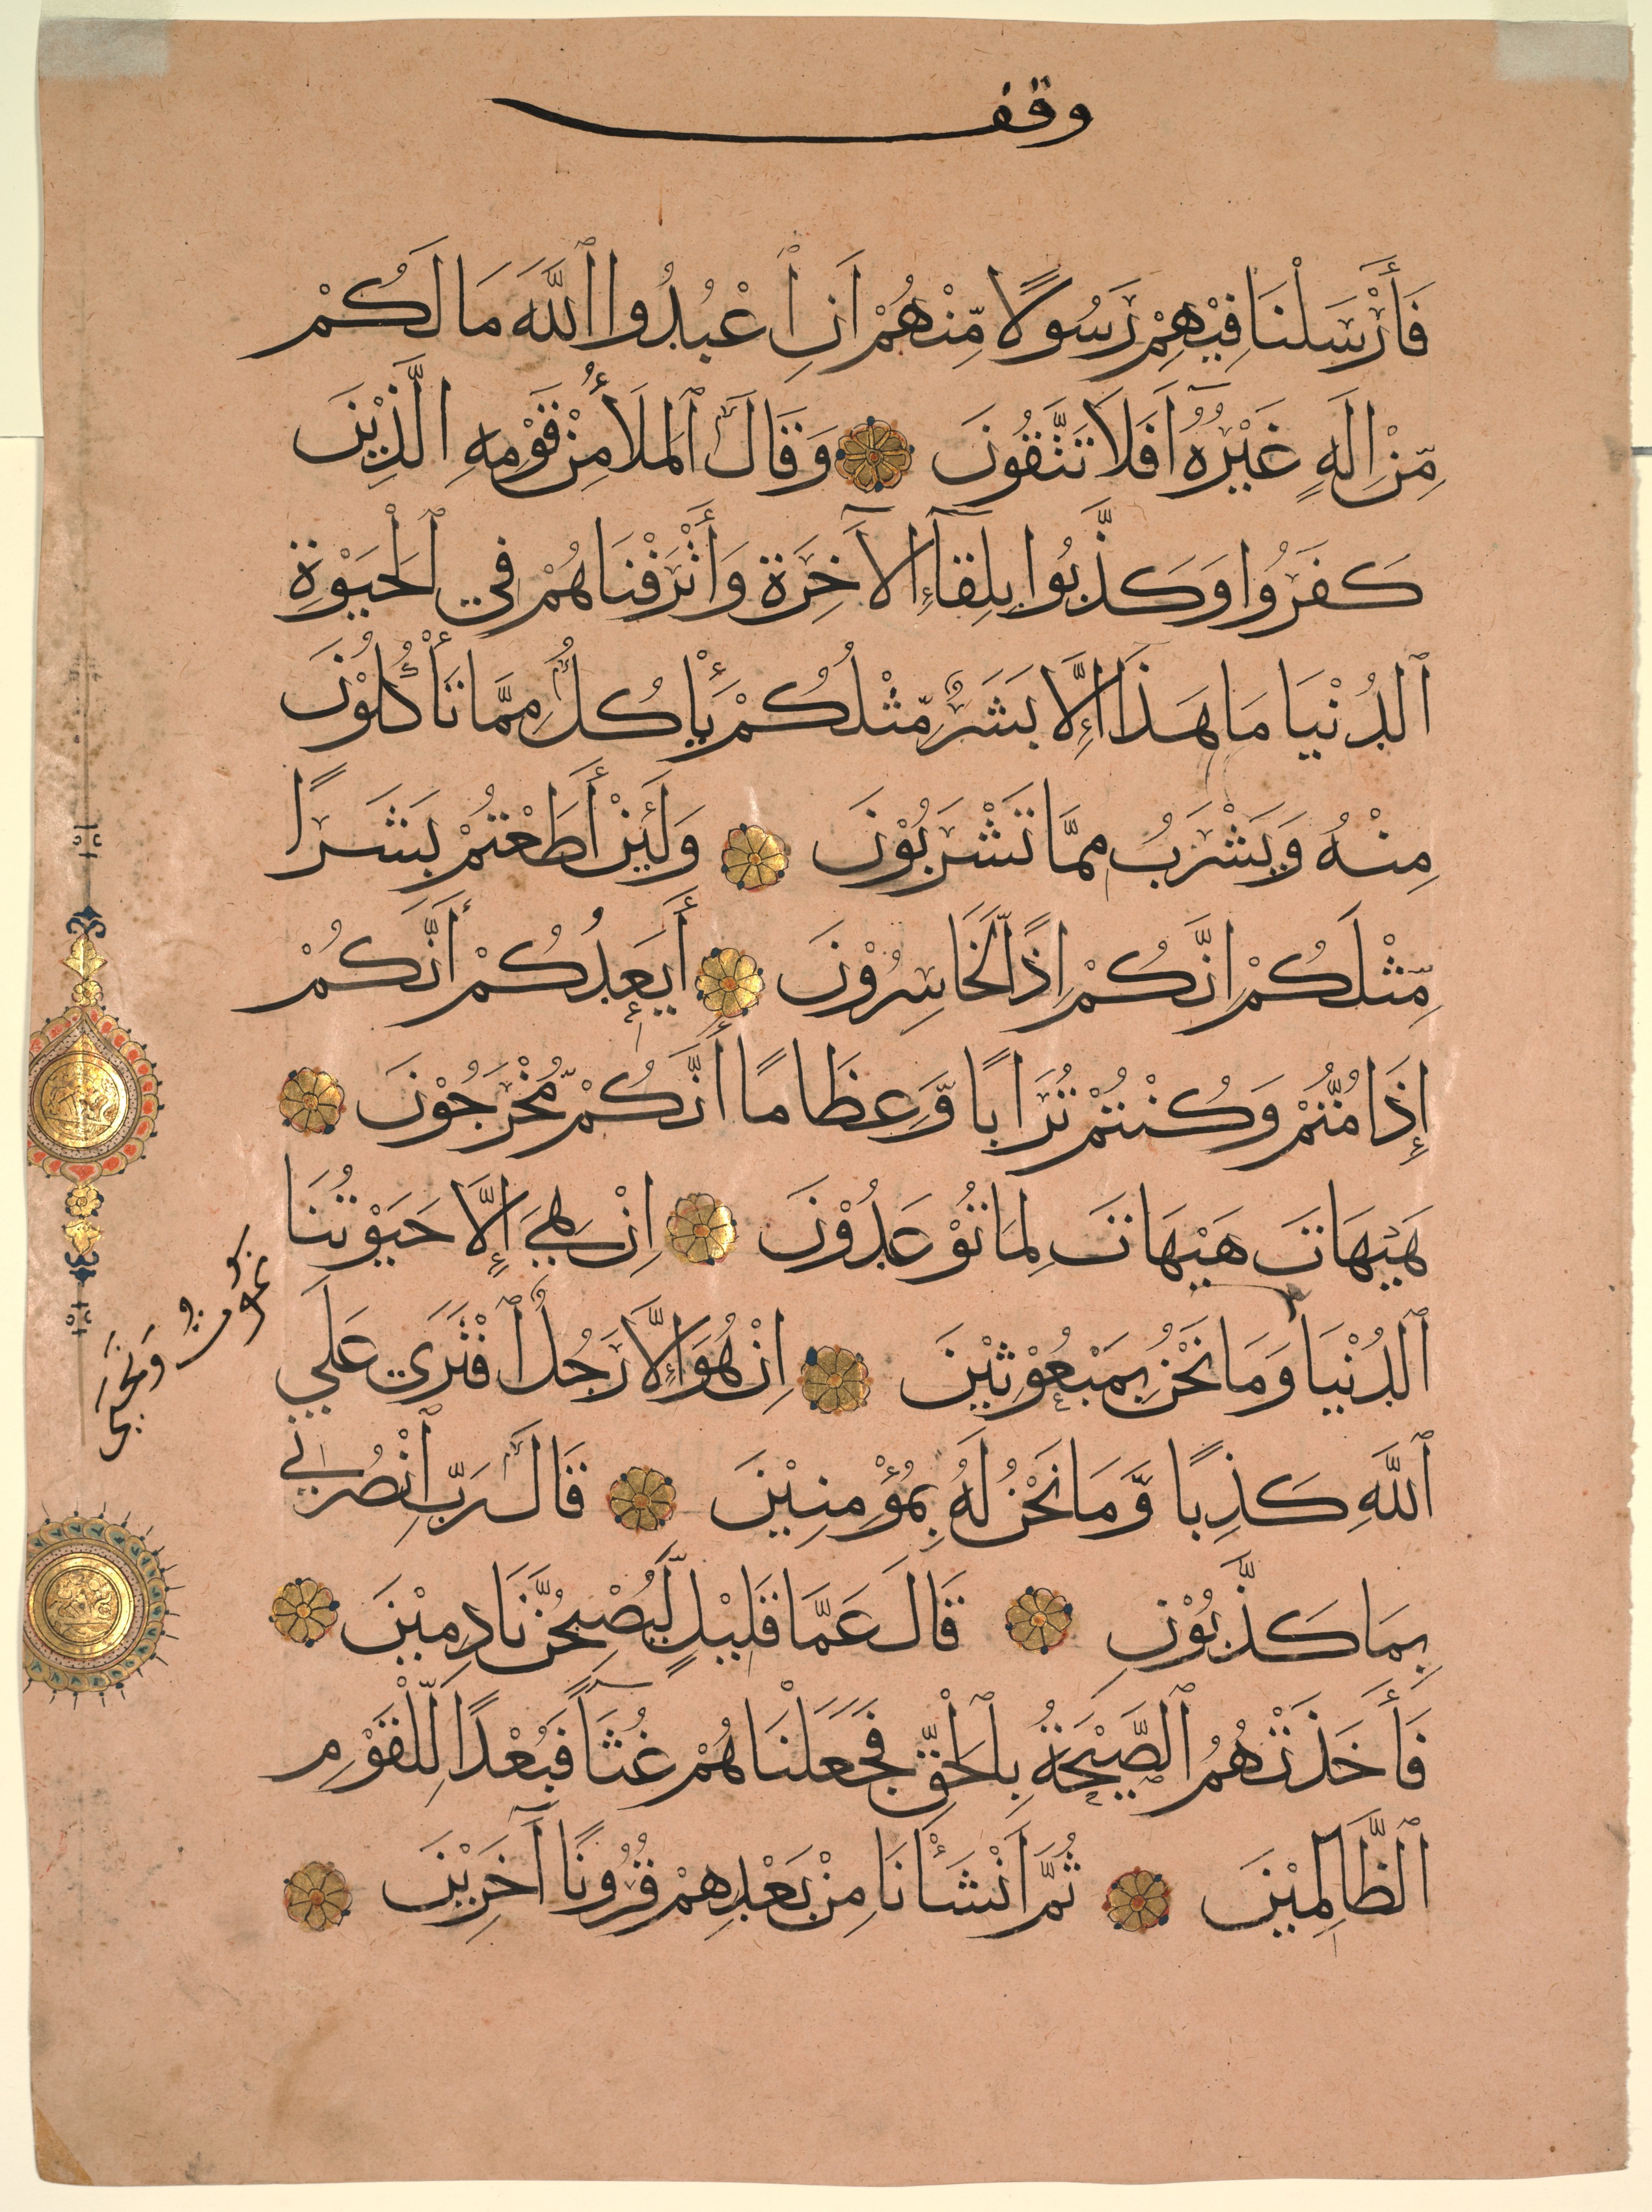 وقف
فَأَرْسَلْنَا فِيْهِمْ رَسُوْلًا مِّنْهُمْ اَنِ ٱعْبُدُوا ٱللَّهَ مَا لَكُمْ
مِّنْ اِلَهٍ غَيْرُهُ اَفَلَا تَتَّقُونَ وَقَالَ ٱلْمَلَأُ مِنْ قَوْمِهِ الَّذِيْنَ
كَفَرُوا وَكَذَّبُوا بِلِقَآءِ الْآخِرَةِ وَأَتْرَفْنَاهُمْ فِي ٱلْحَيَوٰةِ
ٱلدُنْيَا مَا هَذَا إِلَّا بَشَرٌ مِّثْلُكُمْ يَأْكُلُ مِمَّا تَأْكُلُوْنَ
مِنْهُ وَيَشْرَبُ مِمَّا تَشْرَبُوْنَ وَلَئِنْ أَطَعْتُمْ بَشَرًا
مِّثْلَكُمْ اِنَّكُمْ اِذًا لَّخَاسِرُوْنَ أَيَعِدُكُمْ أَنَّكُمْ
إِذَا مُتُّمْ وَكُنْتُمْ تُرَابًا وَّعِظَامًا أَنَّكُمْ مُّخْرَجُوْنَ
هَيْهَاتَ هَيْهَاتَ لِمَا تُوْعَدُوْنَ اِنْ هِيَ إِلَّا حَيَوْتُنَا
ٱلدُنْيَا وَمَا نَحْنُ بِمَبْعُوْثِيْنَ اِنْ هُوَ إِلَّا رَجُلٌ ٱفْتَرَي عَلَي
نموت ونحيا
ٱللَّهِ كَذِبًا وَّمَا نَحْنُ لَهُ بِمُؤْمِنِيْنَ قَالَ رَبِّ ٱنْصُرْنِي
بِمَا كَذَّبُوْنِ قَالَ عَمَّا قَلِيْلٍ لَّيُصْبِحُنَّ نَادِمِيْنَ
فَأَخَذَتْهُمُ ٱلصَّيْحَةُ بِٱلْحَقِّ فَجَعَلْنَاهُمْ غُثَآءً فَبُعْدًا لِّلْقَوْمِ
ٱلظَّالِمِيْنَ ثُمَّ اَنْشَأْنَا مِنْ بَعْدِهِمْ قُرُوْنًا آخَرِيْنَ